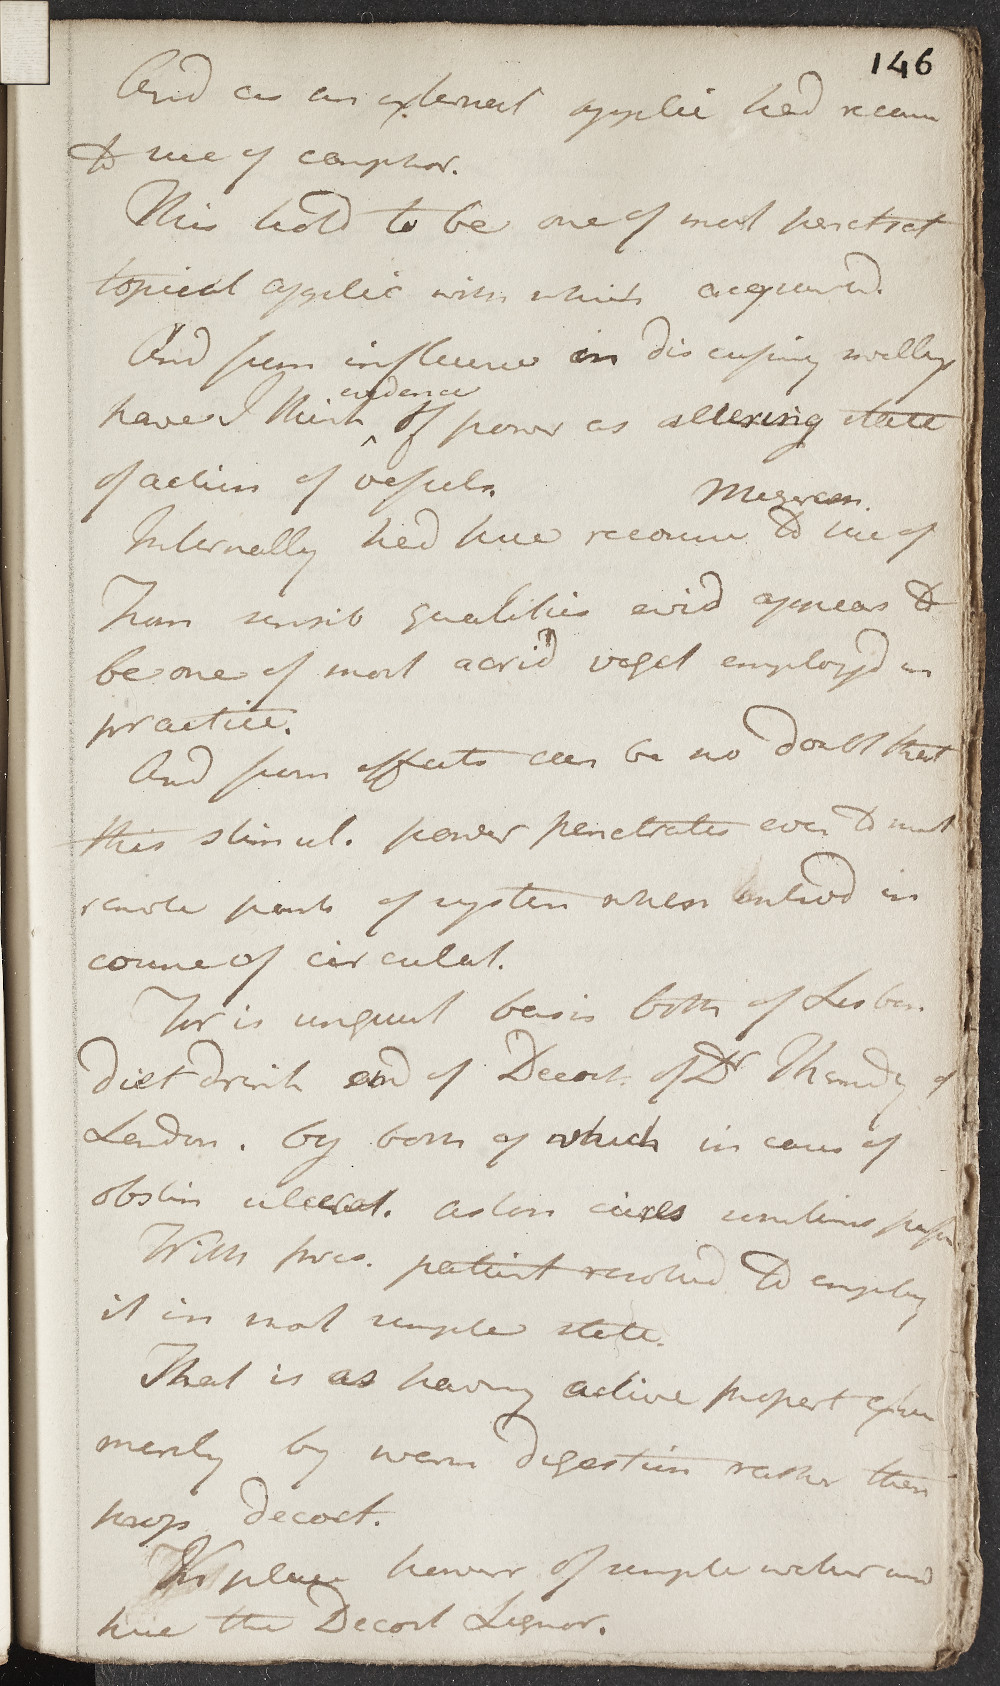 146
And as an external applic had recour
to use of camphor.
This hold to be one of most penetrat
topical applic with which acquaintd.
And from influence in discussing swellings
have I think evidence of power as altering state
of action of vessels.
Mezereon.
Internally had here recourse to use of
From sensib qualities evid appears to
be one of most acrid veget employd in
practice.
And from effects can be no doubt that
this stimul. power penetrates even to most
remote parts of system when introd in
course of circulat.
For is unquest basis both of Lisbon
diet drink and of Decoct. of Dr
London. by both of which in cases of
obstin ulcerat. aston cures sometimes perfor
With pres. patient resolved to employ
it in most simple state.
That is as having active propert
merely by warm digestion rather than
prop decoct.
In place however of simple water used
here the Decoct Lignor.